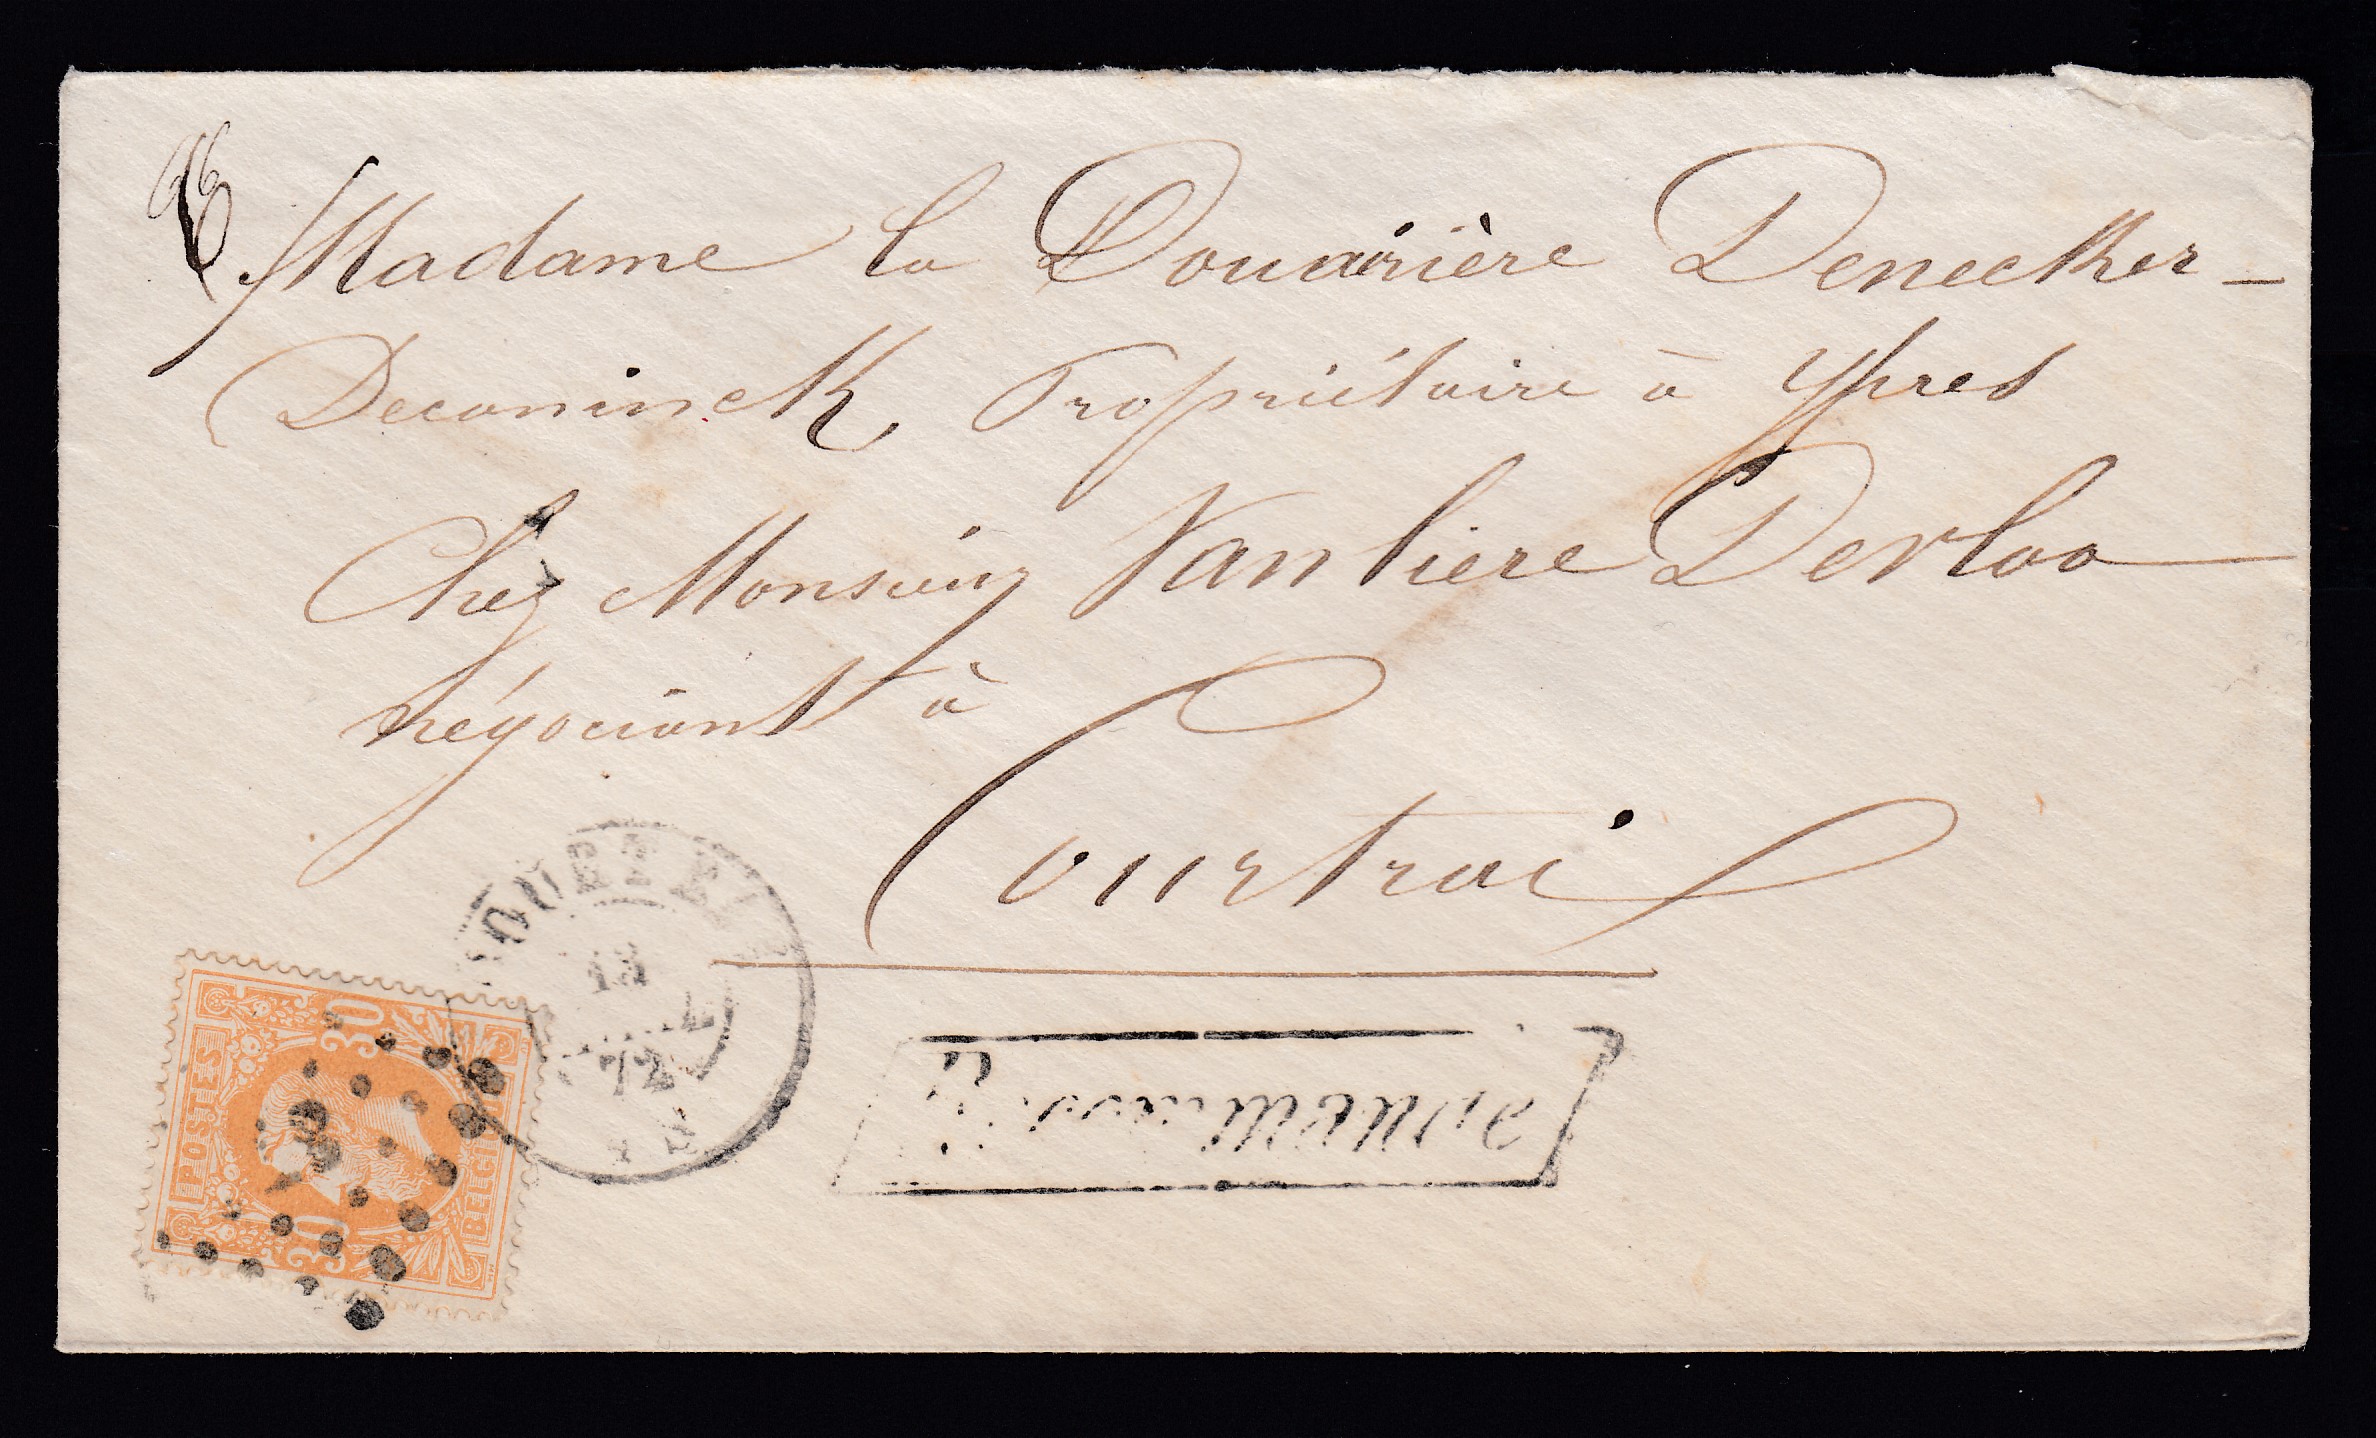 Madame la Douairière Denecker-
Deconinck Propriétaire à Ypres
Chez Monsieur Vanliere Devloo
négociant à
Courtrai
COURTRAI
13
74
30
POSTES
BELGIQUE
30